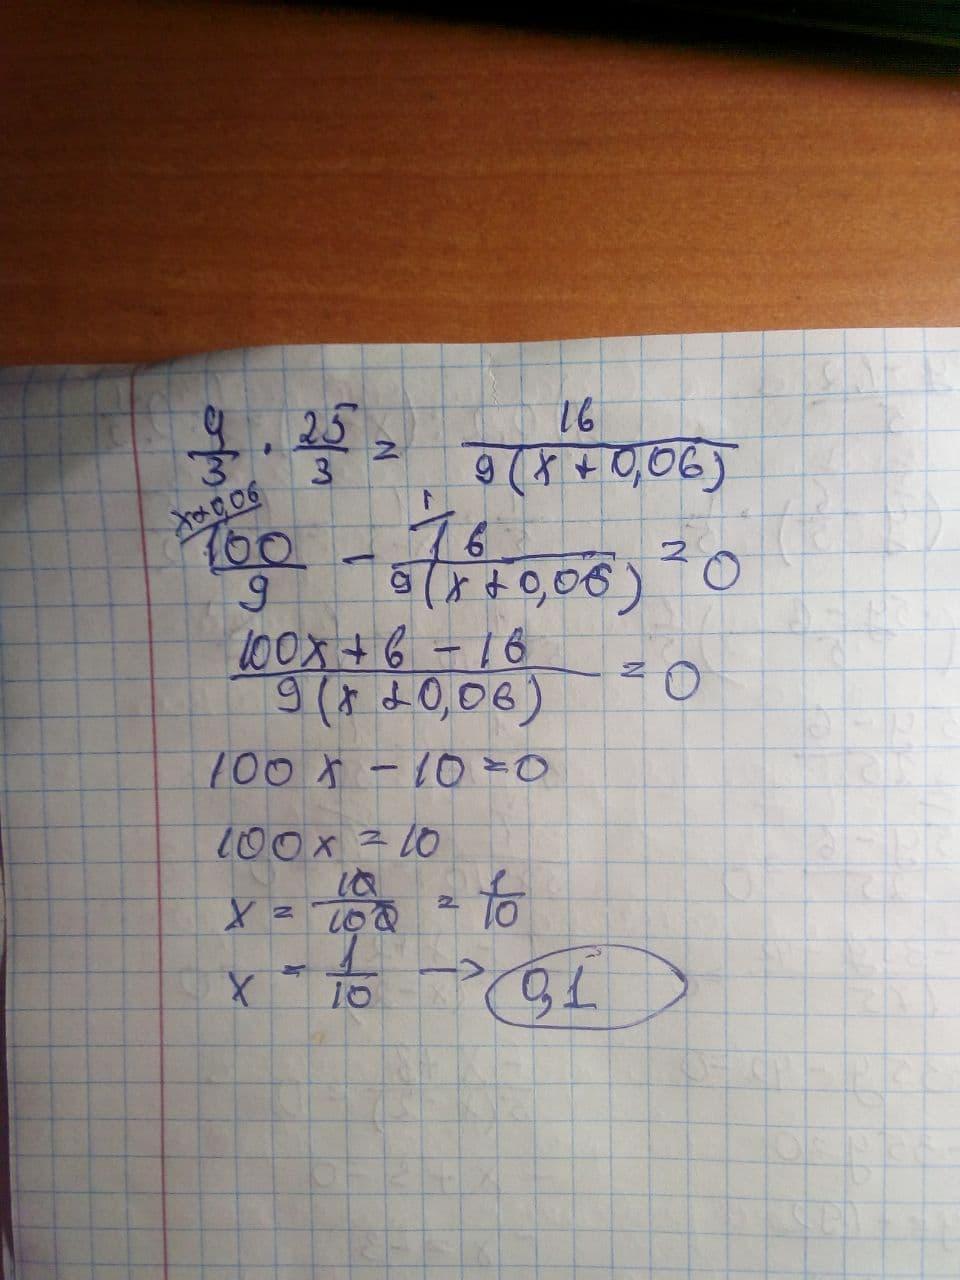 4/3 · 25/3 = 16/(9(x+0,06))
x+0,06 1
100/9 - 16/(9(x+0,06)) = 0
(100x+6-16)/(9(x+0,06)) = 0
100x-10=0
100x=10
x = 10/100 = 1/10
x = 1/10 → 0,1